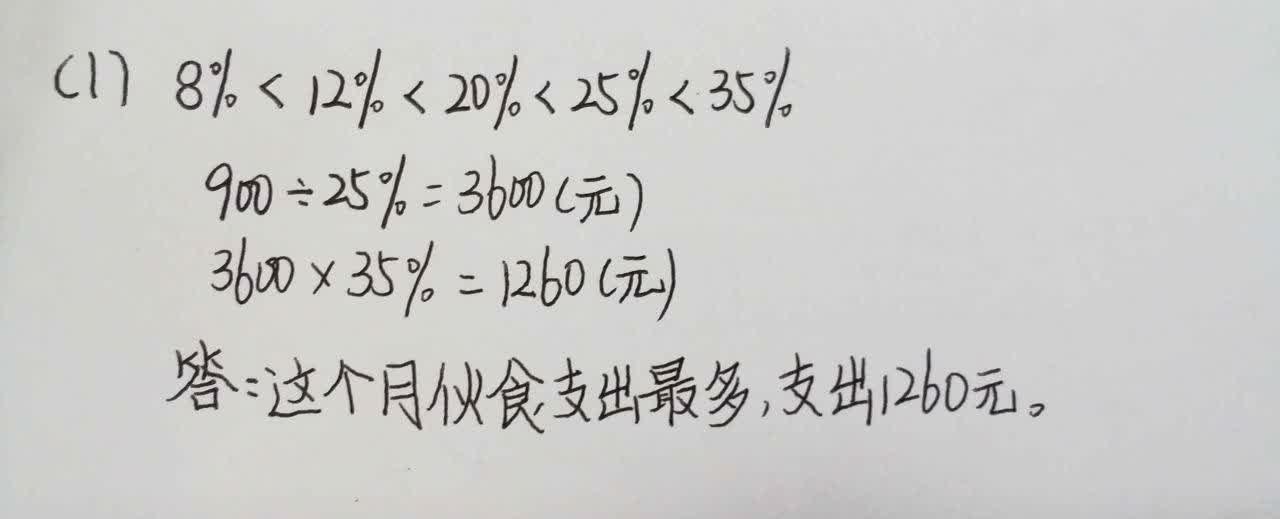 (1) 8% < 12% < 20% < 25% < 35%
900 ÷ 25% = 3600 (元)
3600 × 35% = 1260 (元)
答:这个月伙食支出最多,支出1260元。